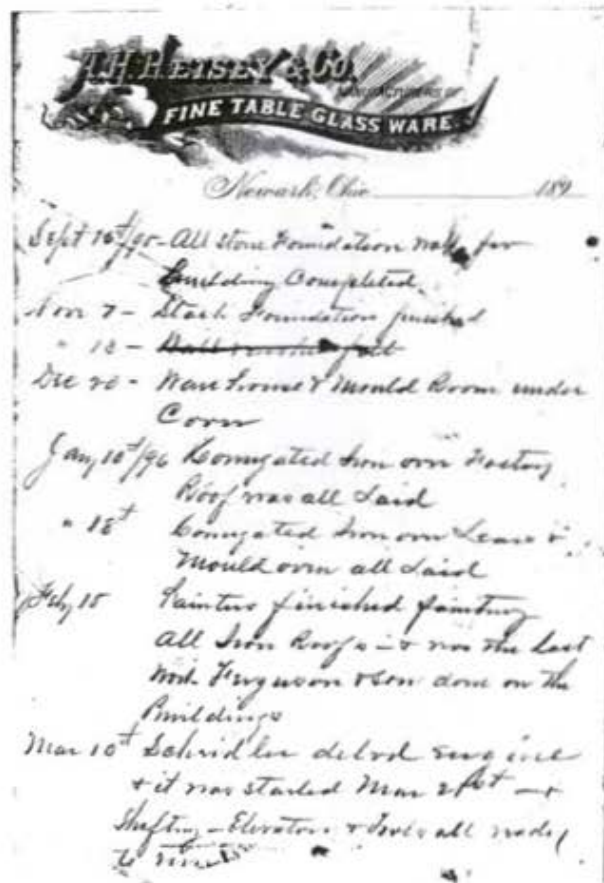 A.H. HEISEY & CO.
MANUFACTURERS OF
FINE TABLE GLASS WARE.
Newark, Ohio 189
Sept 16 /95 - All stone Foundation for
Building Completed.
Nov 7 - Stack Foundation finished
" 12 -
Dec 20 - Ware house & Mould Room under
Cover
Jany 10t /96 Corrugated Iron over Factory
Roof was all Laid
" 18t Corrugated Iron over &
Mould over all Laid
Feby 15 Painters finished painting
All Iron Roofs - & was the last
Work Ferguson & Son done on the
Buildings
Mar 10t delvd engine
& it was started Mar 21st - &
Shafting - Elevators & all ready
to run